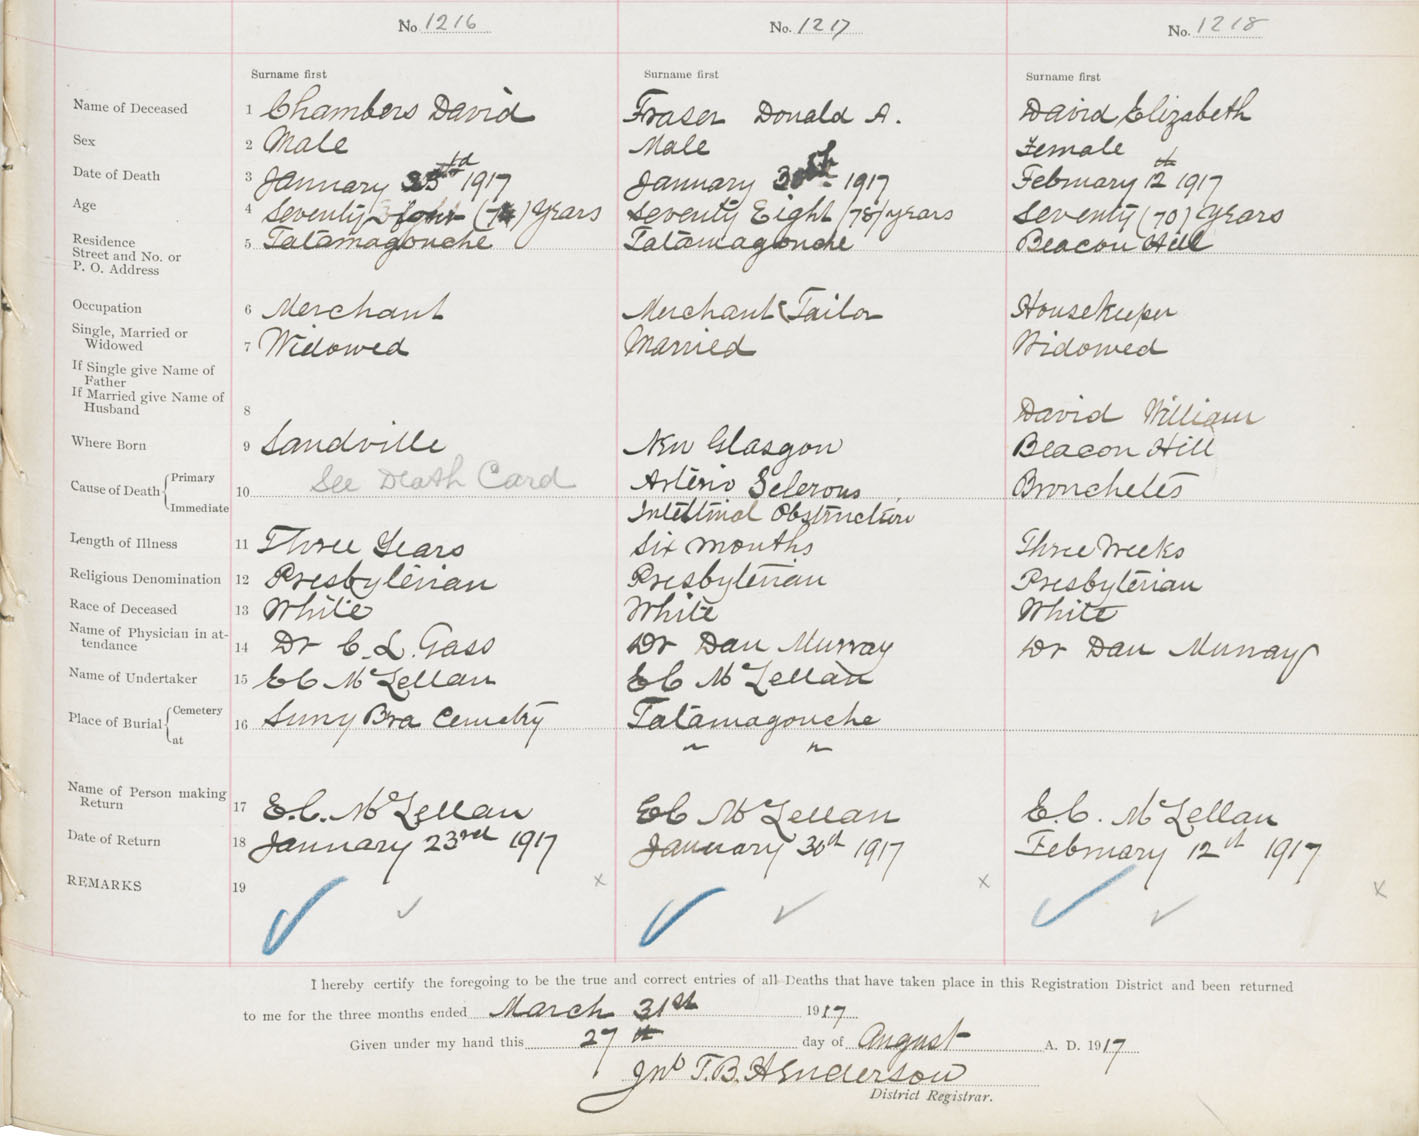 No 1216 No. 1217 No. 1218
Surname first Surname first Surname first
Name of Deceased 1 Chambers David Fraser Donald A. Daird, Elizabeth
Sex 2 Male Male Female
Date of Death 3 January 1917 January 30th 1917 February 12th 1917
Age 4 Seventy (74) Years Seventy Eight (78) years Seventy (70) Years
Residence
Street and No. or
P. O. Address 5 Tatamagouche Tatamagouche Beacon Hill
Occupation 6 Merchant Merchant Tailor Housekeeper
Single, Married or
Widowed 7 Widowed Married Widowed
If Single give Name of
Father
If Married give Name of
Husband 8 David William
Where Born 9 Sandville New Glasgow Beacon Hill
Cause of Death Primary
Immediate 10 See Death Card Arterio Sclerous Bronchetes
Intestinal Obstruction
Length of Illness 11 Three Years Six months Three Weeks
Religious Denomination 12 Presbyterian Presbyterian Presbyterian
Race of Deceased 13 White White White
Name of Physician in at-
tendance 14 Dr C. L. Gass Dr Dan Murray Dr Dan Murray
Name of Undertaker 15 E C McLellan E C McLellan
Place of Burial Cemetery
at 16 Suny Bra Cemetry Tatamagouche
" "
Name of Person making
Return 17 E. C. McLellan E C McLellan E. C. McLellan
Date of Return 18 January 23rd 1917 January 30th 1917 February 12th 1917
REMARKS 19 x x x
I hereby certify the foregoing to be the true and correct entries of all Deaths that have taken place in this Registration District and been returned
to me for the three months ended March 31st 1917
Given under my hand this 27th day of August A. D. 1917
Jno T. B. Henderson
District Registrar.